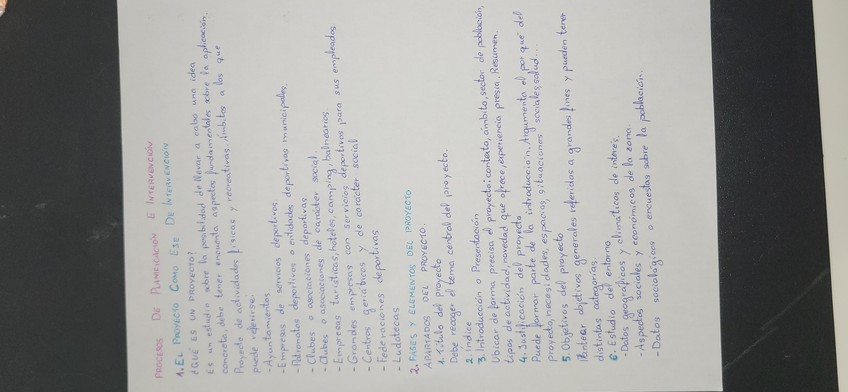 PROCESOS DE PLANIFICACIÓN E INTERVENCIÓN
1. EL PROYECTO COMO EJE DE INTERVENCIÓN
¿QUÉ ES UN PROYECTO?
Es un estudio sobre la posibilidad de llevar a cabo una idea
concreta, debe tener encuenta aspectos fundamentales sobre la aplicación.
Proyecto de actividades físicas y recreativas, ámbitos a los que
puede referirse:
- Ayuntamientos
- Empresas de servicios deportivos
- Patronatos deportivos o entidades deportivas municipales.
- Clubes o asociaciones deportivas
- Clubes o asociaciones de carácter social.
- Empresas turísticas, hoteles, camping, balnearios.
- Grandes empresas con servicios deportivos para sus empleados.
- Centros geriáticos y de carácter social
- Federaciones deportivas
- Ludotecas
2. FASES Y ELEMENTOS DEL PROYECTO
APARTADOS DEL PROYECTO.
1. Título del proyecto
Debe recoger el tema central del proyecto.
2. Índice
3. Introducción o Presentación
Ubicar de forma precisa el proyecto: contexto, ámbito, sector de población,
tipos de actividad, novedad que ofrece, experiencia previa. Resumen.
4. Justificación del proyecto
Puede formar parte de la introducción. Argumenta el por qué del
proyecto, necesidades, espacios, situaciones sociales, salud...
5. Objetivos del proyecto
Plantear objetivos generales referidos a grandes fines y pueden tener
distintas categorías.
6. Estudio del entorno
- Datos geográficos y climáticos de interés.
- Aspectos sociales y económicos de la zona.
- Datos sociológicos o encuestas sobre la población.